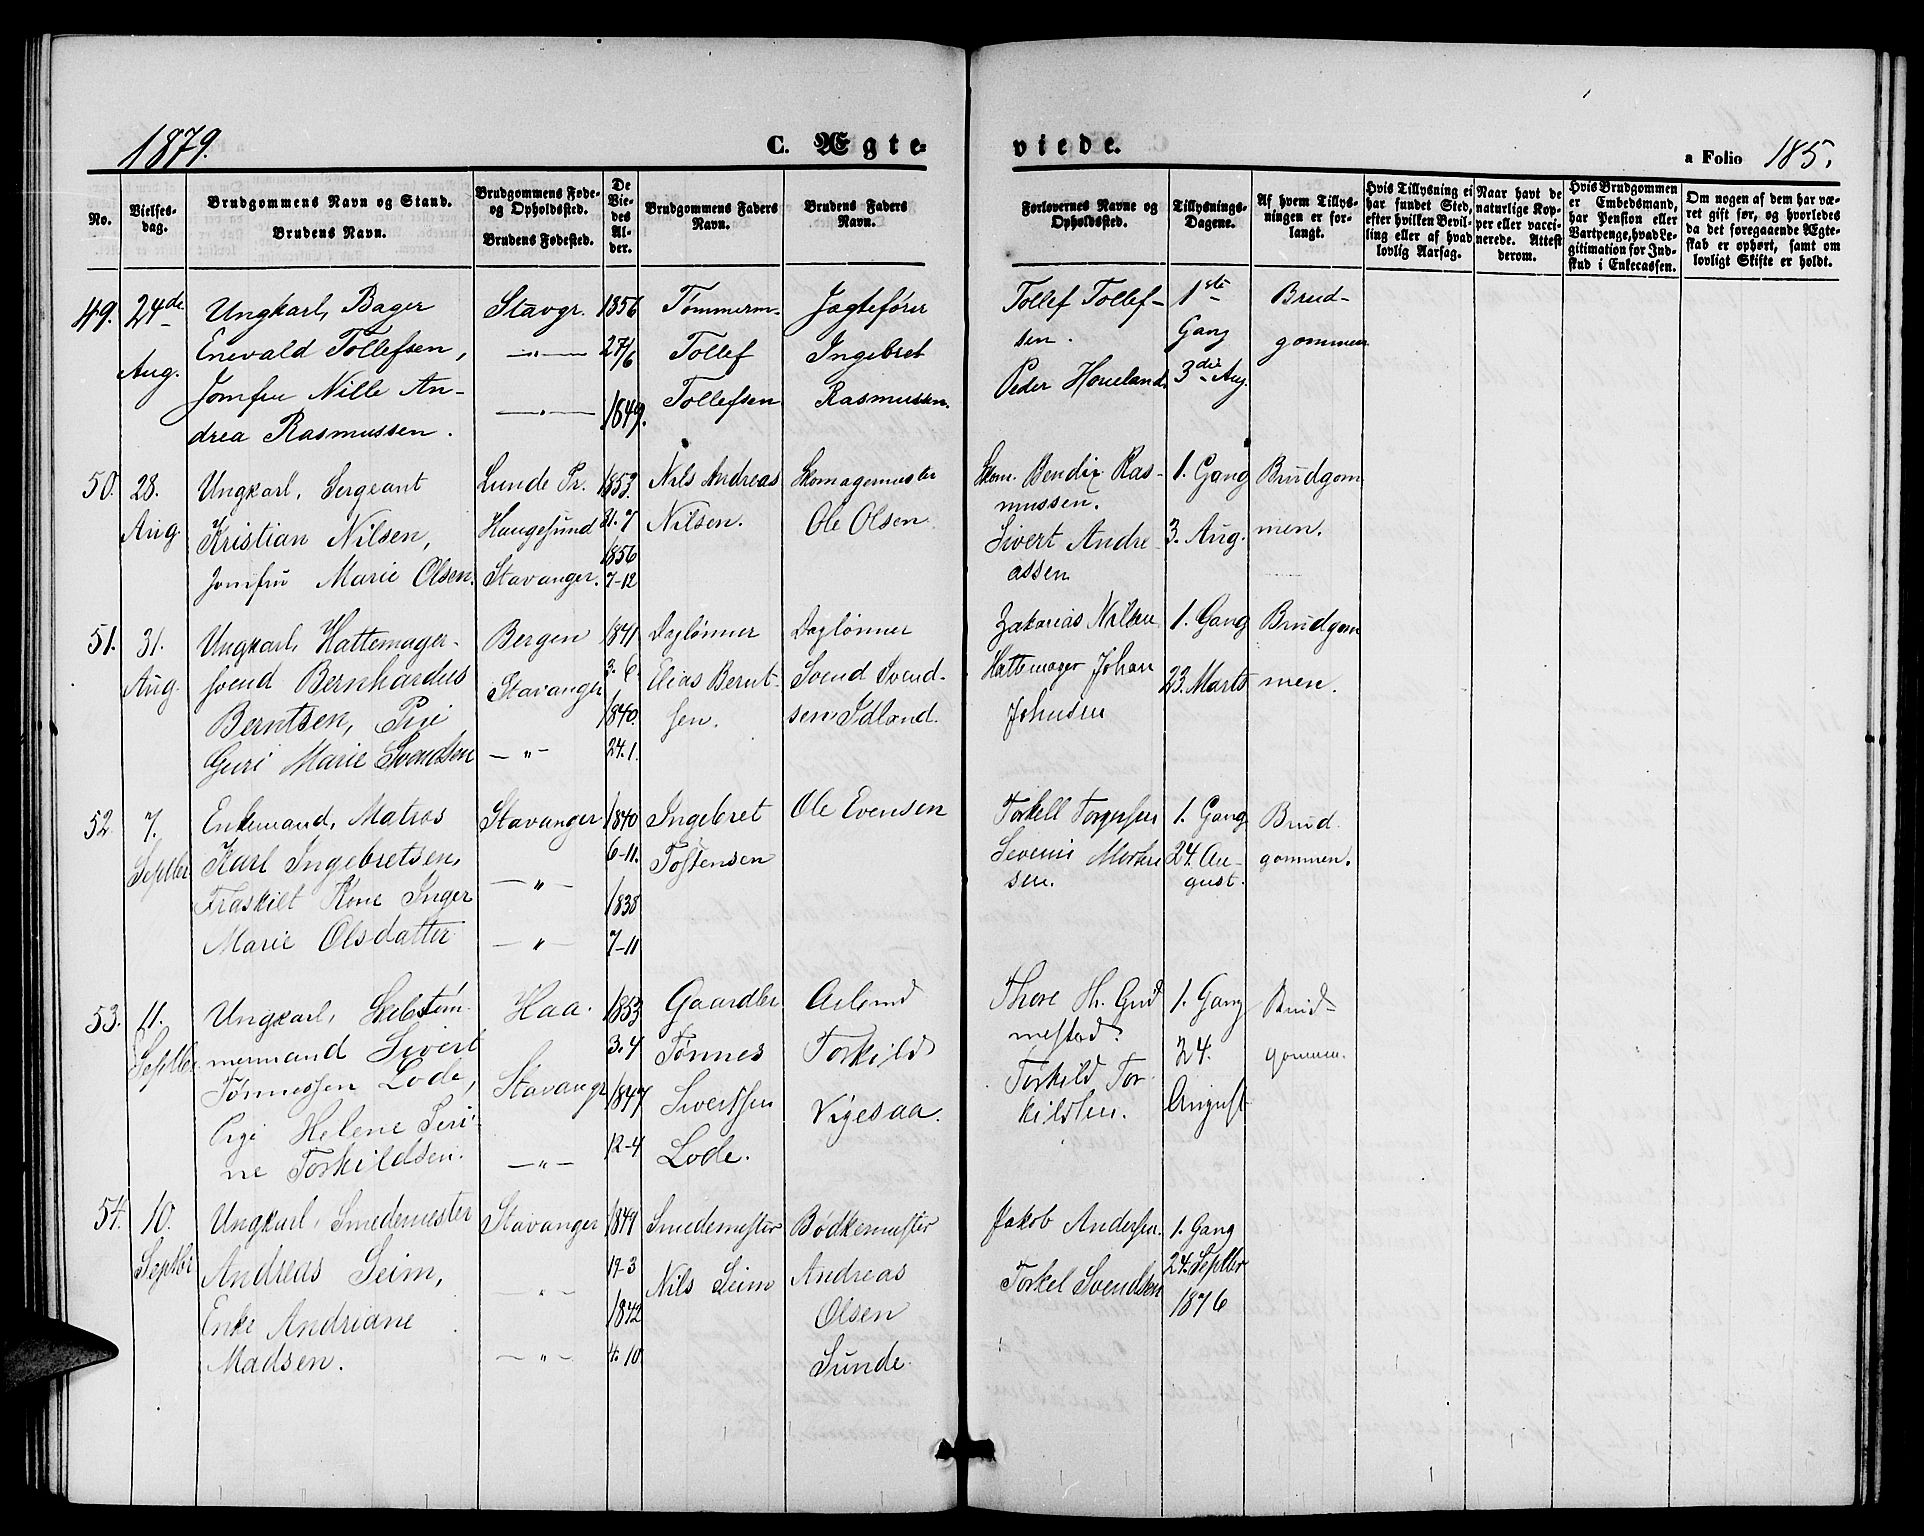 1879.
C. Ægte-
viede.
a Folio 185.
No.
Vielses-
dag.
Brudgommens Navn og Stand.
Brudens Navn.
Brudgommens Føde-
og Opholdssted.
Brudens Fødested.
De
Vie-
des
Al-
der.
Brudgommens Faders
Navn.
Brudens Faders
Navn.
Forlovernes Navne og
Opholdssted.
Tillysnings-
Dagene.
Af hvem Tillys-
ningen er for-
langt.
Hvis Tillysning ei
har fundet Sted,
efter hvilken Bevil-
ling eller af hvad
lovlig Aarsag.
Naar havt de
naturlige Kop-
per eller vacci-
nerede. Attest
derom.
Hvis Brudgommen
er Embedsmand,
har Pension eller
Vartpenge, hvad Le-
gitimation for Ind-
skud i Enkecassen.
Om nogen af dem har væ-
ret gift før, og hvorledes
da det foregaaende Ægte-
skab er ophørt, samt om
lovligt Skifte er holdt.
49.
24de
Aug.
Ungkarl, Bager
Enevald Tollefsen,
Jomfru Nille An-
drea Rasmussen.
Stavgr.
—"—
—"—
1856
27/6
1849.
Tømmerm.
Tollef
Tollefsen
Jagtefører
Ingebret
Rasmussen.
Tollef Tollef-
sen.
Peder Houeland.
1ste
Gang
3die Aug.
Brud-
gommen
50.
28.
Aug.
Ungkarl, Sergeant
Kristian Nilsen,
Jomfru Marie Olsen.
Lunde Pr.
Haugesund
Stavanger.
1853.
31.7
1856
7-12
Nils Andreas
Nilsen.
Skomagermester
Ole Olsen.
Skom. Bendix Ras-
mussen.
Sivert Andre-
assen
1. Gang
3. Aug.
Brudgom
men.
51.
31.
Aug.
Ungkarl, Hattemager-
svend Bernhardus
Berntsen, Pige
Guri Marie Svendsen
Bergen
Stavanger
—"—
1841
3. 6.
1840.
24.1.
Daglønner
Elias Bernt-
sen.
Daglønner
Svend Svend-
sen Idland.
Zakarias Nilsen
Hattemager Johan
Johnsen
1. Gang
23. Marts
Brudgom
men.
52.
7.
Septbr
Enkemand, Matros
Karl Ingebretsen,
Fraskilt Kone Inger
Marie Olsdatter
Stavanger
—"—
—"—
1840
6-11.
1838
7-11
Ingebret
Tostensen
Ole Evensen
Torkell Torgersen
Severin Morten
sen.
1. Gang
24. Au-
gust.
Brud
gommen.
53.
11.
Septbr
Ungkarl, Skibstøm-
mermand Sivert
Tønnessen Lode,
Pige Helene Seri-
ne Torkildsen.
Haa.
Stavangr
—"—
1853
3.4
1847
12-4
Gaardbr
Tønnes
Sivertsen
Lode.
Torkild
Vigesaa.
Thore Th. Gud
mestad.
Torkild Tor-
kildsen.
1. Gang
24.
August
Brud-
gommen.
54.
10.
Septbr
Ungkarl, Smedemester
Andreas Seim,
Enke Andriane
Madsen.
Stavanger
—"—
—"—
1841
17-3
1842
4.10
Smedemester
Nils Seim
Bødkermester
Andreas
Olsen
Sunde.
Jakob Andersen.
Torkel Svendsen
1. Gang
24. Septbr
1876